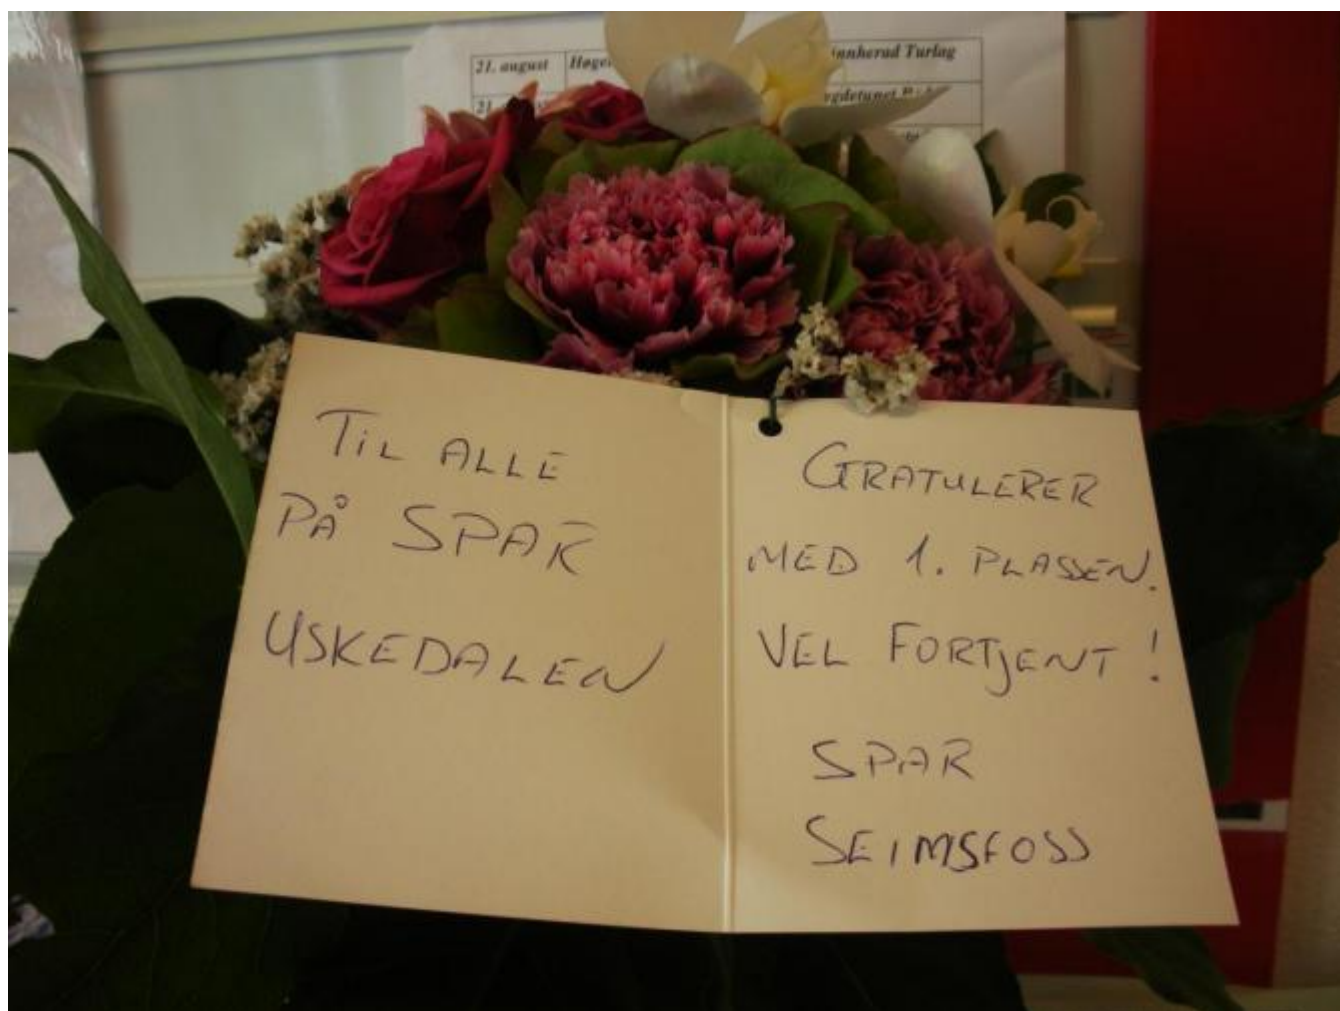 21. august
Turlag
21.
TIL ALLE
PÅ SPAR
USKEDALEN
GRATULERER
MED 1. PLASSEN.
VEL FORTJENT!
SPAR
SEIMSFOSS